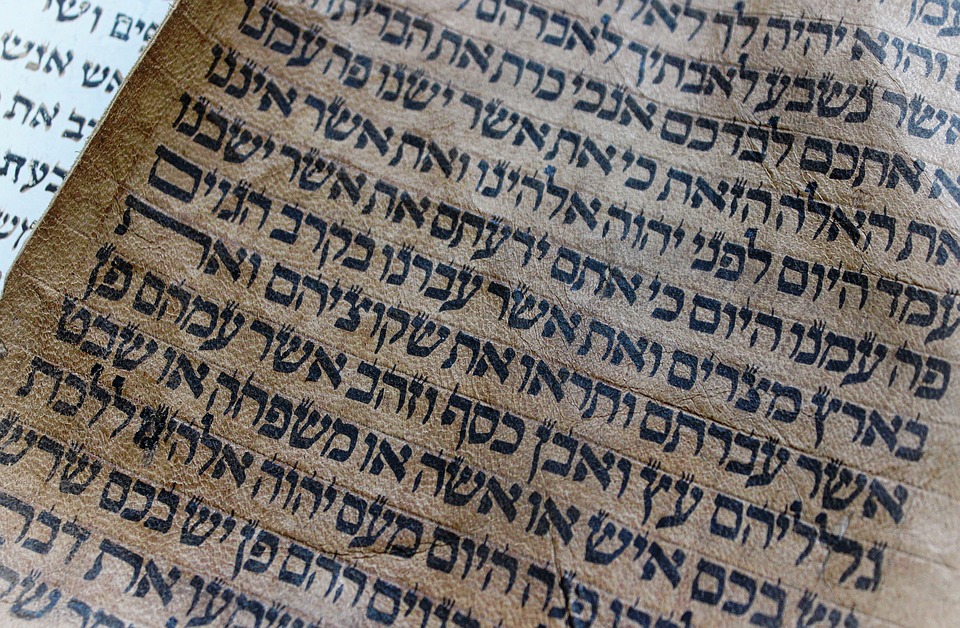 והוא יהיה לך
נשבע לאבתיך לאברהם
אתכם לבדכם אנכי כרת את הברית
את האלה הזאת כי את אשר ישנו פה עמנו
עמד היום לפני יהוה אלהינו ואת אשר איננו
פה עמנו היום כי אתם ידעתם את אשר ישבנו
בארץ מצרים ואת אשר עברנו בקרב הגוים
אשר עברתם ותראו את שקוציהם ואת
גלליהם עץ ואבן כסף וזהב אשר עמהם פן
יש בכם איש או אשה או משפחה או שבט
פנה היום מעם יהוה ללכת
ההם פן יש בכם שרש
את דברי